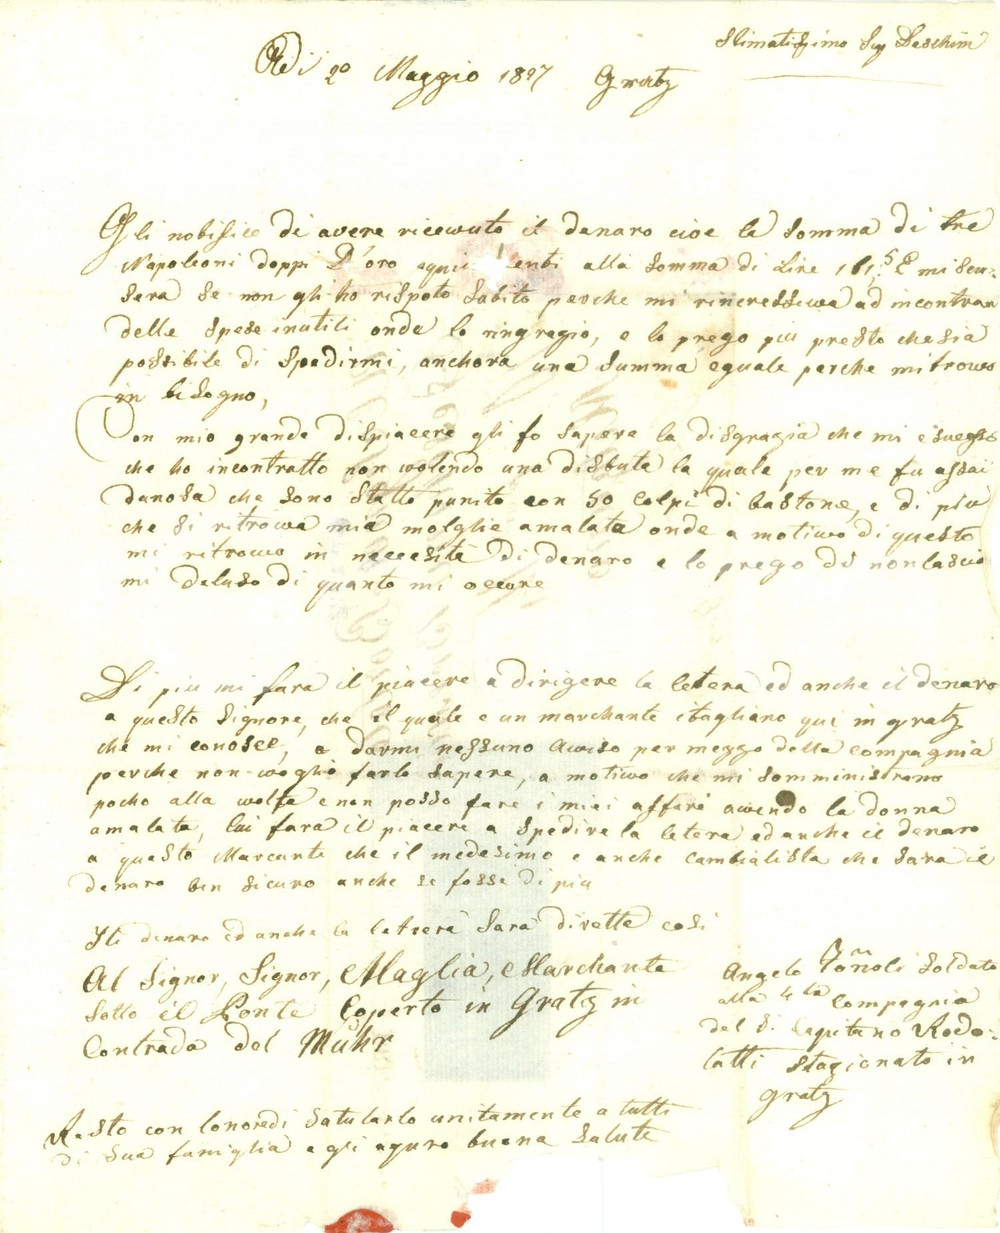 Stimatissimo Sig Deschim
Adi 20 Maggio 1827 Gratz
Gli nobifico di avere ricewuto il denaro cioe la somma di tre
Napoleoni doppi D'oro alla somma di Lire mi scu-
sera se non gli ho risposto subito perche mi rincressewa ad incontrar
delle spese inutili onde lo ringragio, e lo prego piu presto che sia
possibile di spedirmi, anchora una summa eguale perche mi trowo
in bisogno,
Con mio grande dispiacere gli fo sapere la disgragia che mi e sucesso
che ho incontratto non wolendo una disbuta la quale per me fu assai
danosa che sono statto punito con 50 colpi di bastone, e di piu
che si ritrowa mia moglie amalata onde a motiwo di questo
mi ritrowo in necesità di denaro e lo prego di non lascia
mi deluso di quanto mi occore
Di piu mi fara il piacere a dirigere la letera ed anche il denaro
a questo Signore, che il quale e un marchante itagliano qui in gratz
che mi conosce, a darmi nessuno awiso per meggo della compagnia
perche non woglio farlo sapere, a motiwo che mi somministrano
pocho alla wolta e non posso fare i miei affari awendo la donna
amalata, lui fara il piacere a spedire la letera ed anche il denaro
a questo Marcante che il medesimo e anche cambialista che sara il
denaro ben sicuro anche se fosse di piu
Il denaro ed anche la letera sara diretta cosi
Al Signor, Signor, Maglia, Marchante
Sotto il Ponte Coperto in Gratz in
Contrada del Muhr
Angelo Soldato
alla 4ta Compagnia
del S. Capitano Rodo-
latti stagionato in
gratz
Resto con lonore di salutarlo unitamente a tutti
di sua famiglia e gli aguro buona salute